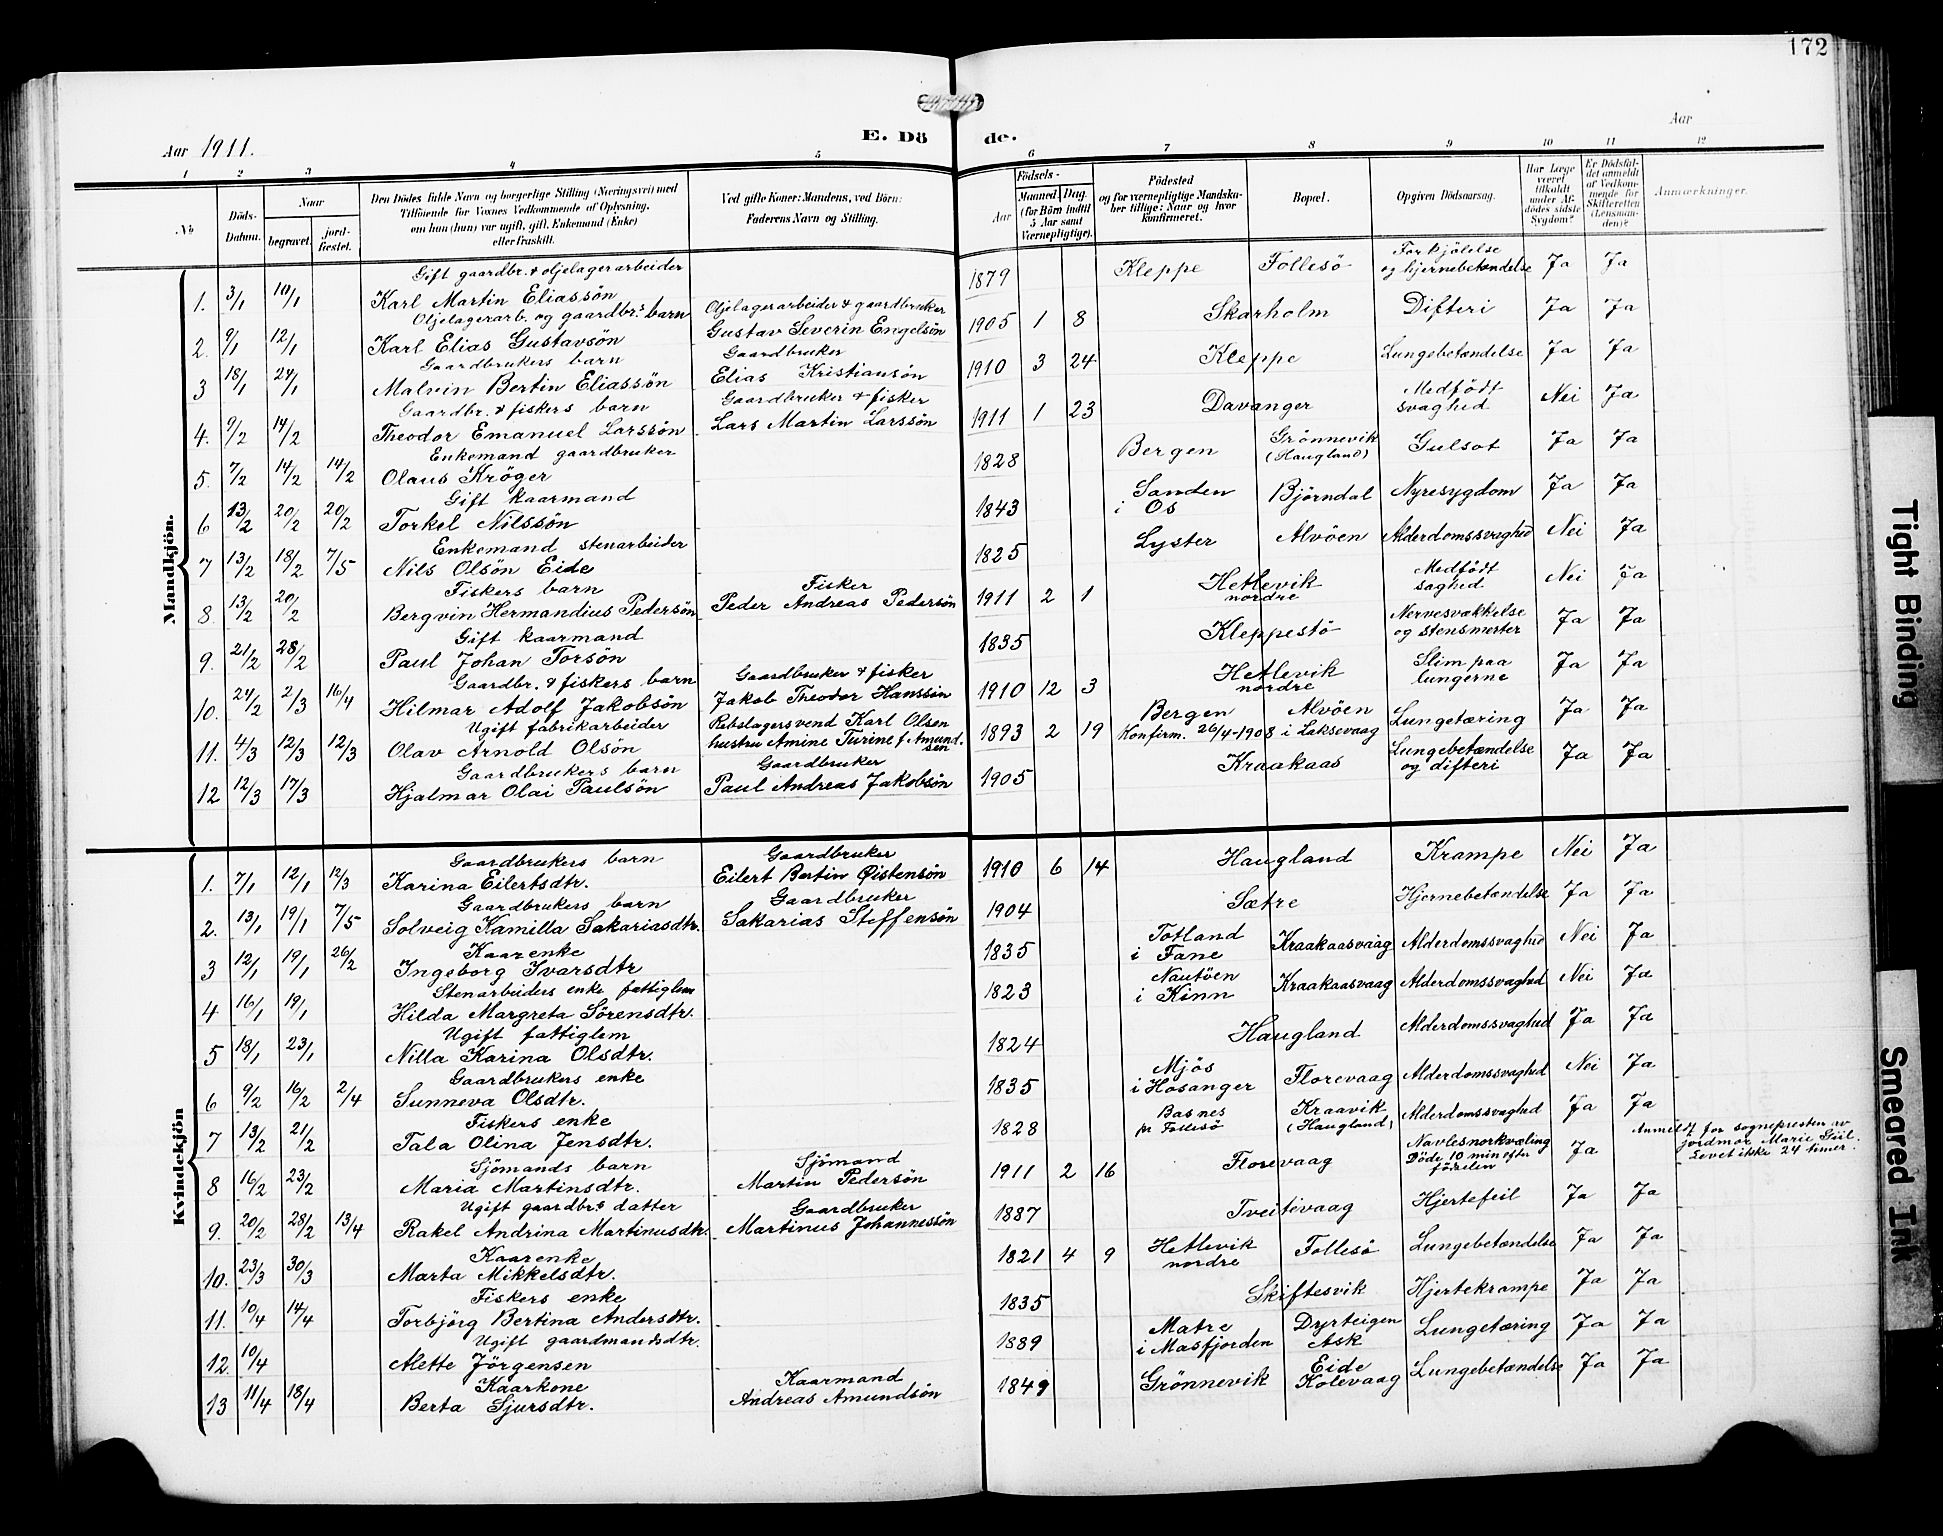 172
Aar 1911.
E. Dö de.
Aar
1 2 3 4 5 6 7 8 9 10 11 12
No
Döds-Datum.
Naar
begravet.
jord-fæstet.
Den Dödes fulde Navn og borgerlige Stilling (Næringsvei) med
Tilföiende for Voxnes Vedkommende af Oplysning,
om han (hun) var ugift, gift, Enkemand (Enke)
eller fraskilt.
Ved gifte Koner: Mandens, ved Börn:
Faderens Navn og Stilling.
Födsels-
Aar
Maaned. Dag.
(for Börn indtil
5 Aar samt
Værnepligtige).
Födested
og for værnepligtige Mandska-
ber tillige: Naar og hvor
konfirmeret.
Bopæl.
Opgiven Dödsaarsag.
Har Læge
været
tilkaldt
under Af-
dödes sidste
Sygdom?
Er Dödsfal-
det anmeldt
af Vedkom-
mende for
Skifteretten
(Lensman-
den)?
Anmærkninger.
Mandkjön.
Gift gaardbr. & oljelagerarbeider
1. 3/1 10/1 Karl Martin Eliassön 1879 Kleppe Follesö Forkjölelse og hjernebetændelse Ja Ja
Oljelagerarb. og gaardbr.s barn Oljelagerarbeider & gaardbruker
2. 9/1 12/1 Karl Elias Gustavsön Gustav Severin Engelsön 1905 1 8 Skarholm Difteri Ja Ja
Gaardbrukers barn Gaardbruker
3 18/1 24/1 Malvin Bertin Eliassön Elias Kristiansön 1910 3 24 Kleppe Lungebetændelse Ja Ja
Gaardbr. & fiskers barn Gaardbruker & fisker
4. 9/2 14/2 Theodor Emanuel Larssön Lars Martin Larssön 1911 1 23 Davanger Medfödt svaghed Nei Ja
Enkemand gaardbruker
5. 7/2 14/2 14/2 Olaus Kröger 1828 Bergen Grönnevik (Haugland) Gulsot Ja Ja
Gift kaarmand
6 13/2 20/2 20/2 Torkel Nilssön 1843 Sanden i Os Björndal Nyresygdom Ja Ja
Enkemand stenarbeider
7 13/2 18/2 7/5 Nils Olsön Eide 1825 Lyster Alvöen Alderdomssvaghed Nei Ja
Fiskers barn Fisker
8. 13/2 20/2 Bergvin Hermandius Pedersön Peder Andreas Pedersön 1911 2 1 Hetlevik nordre Medfödt saghed. Nei Ja
Gift kaarmand
9. 21/2 28/2 Paul Johan Torsön 1835 Kleppestö Nervesvækkelse og stensmerter Ja Ja
Gaardbr. & fiskers barn Gaardbruker & fisker
10. 24/2 2/3 16/4 Hilmar Adolf Jakobsön Jakob Theodor Hanssön 1910 12 3 Hetlevik nordre Slim paa lungerne Ja Ja
Ugift fabrikarbeider Rebslagersvend Karl Olsen
11. 4/3 12/3 12/3 Olav Arnold Olsön hustru Amine Turine f Amundsen 1893 2 19 Bergen Alvöen Konfirm. 26/4-1908 i Laksevaag Lungetæring Ja Ja
Gaardbrukers barn Gaardbruker
12 12/3 17/3 Hjalmar Olai Paulsön Paul Andreas Jakobsön 1905 Kraakaas Lungebetændelse og difteri Ja Ja
Kvindekjön
Gaardbrukers barn Gaardbruker
1. 7/1 12/1 12/3 Karina Eilertsdtr. Eilert Bertin Øistensön 1910 6 14 Haugland Krampe Nei Ja
Gaardbrukers barn Gaardbruker
2. 13/1 19/1 7/5 Solveig Kamilla Sakariasdtr. Sakarias Steffensön 1904 Sætre Hjernebetændelse Ja Ja
Kaarenke
3 12/1 19/1 26/2 Ingeborg Ivarsdtr 1835 Totland i Fane Kraakaasvaag Alderdomssvaghed Nei Ja
Stenarbeiders enke fattiglem
4 16/1 19/1 Hilda Margreta Sörensdtr. 1823 Nautöen i Kinn Kraakaasvaag Alderdomssvaghed Nei Ja
Ugift fattiglem
5 18/1 23/1 Nilla Karina Olsdtr. 1824 Haugland Alderdomssvaghed Ja Ja
Gaardbrukers enke
6 9/2 16/2 2/4 Sunneva Olsdtr. 1835 Mjös i Hosanger Florevaag Alderdomssvaghed Nei Ja
Fiskers enke
7 13/2 21/2 Tala Olina Jensdtr. 1828 Basnes pr Follesö Kraavik (Haugland) Alderdomssvaghed Ja Ja
Sjömands barn Sjömand
8 16/2 23/2 Maria Martinsdtr. Martin Pedersön 1911 2 16 Florevaag Navlesnorkvæling Döde 10 min efter födselen Ja Anmeldt for sognepresten av jordmor Marie Giil. Levet ikke 24 timer.
Ugift gaardbr.s datter Gaardbruker
9. 20/2 28/2 13/4 Rakel Andrina Martinusdtr. Martinus Johannessön 1887 Tveitevaag Hjertefeil Ja Ja
Kaarenke
10. 23/3 30/3 Marta Mikkelsdtr. 1821 4 9 Hetlevik nordre Follesö Lungebetændelse Ja Ja
Fiskers enke
11. 10/4 14/4 Torbjörg Bertina Andersdtr. 1835 Skiftesvik Hjertekrampe Ja Ja
Ugift gaardmandsdtr.
12. 10/4 Mette Jörgensen 1889 Matre i Masfjorden Dyrteigen Ask Lungetæring Ja Ja
Kaarkone Kaarmand
13 11/4 18/4 Berta Sjursdtr. Andreas Amundsön 1849 Grönnevik Eide Kolevaag Lungebetændelse Ja Ja
Tight Binding
Smeared Ink